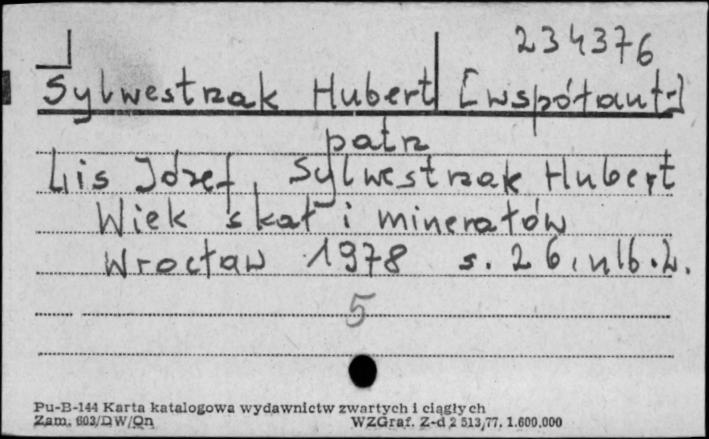 234376
Sylwestrzak Hubert [współaut.]
patrz
Lis Józef, Sylwestrzak Hubert
Wiek skał i minerałów
Wrocław 1978 s. 26, nlb. 2.
5
Pu-B-144 Karta katalogowa wydawnictw zwartych i ciągłych
Zam. 603/DW/Qn WZGraf. Z-d 2 513/77. 1.600.000